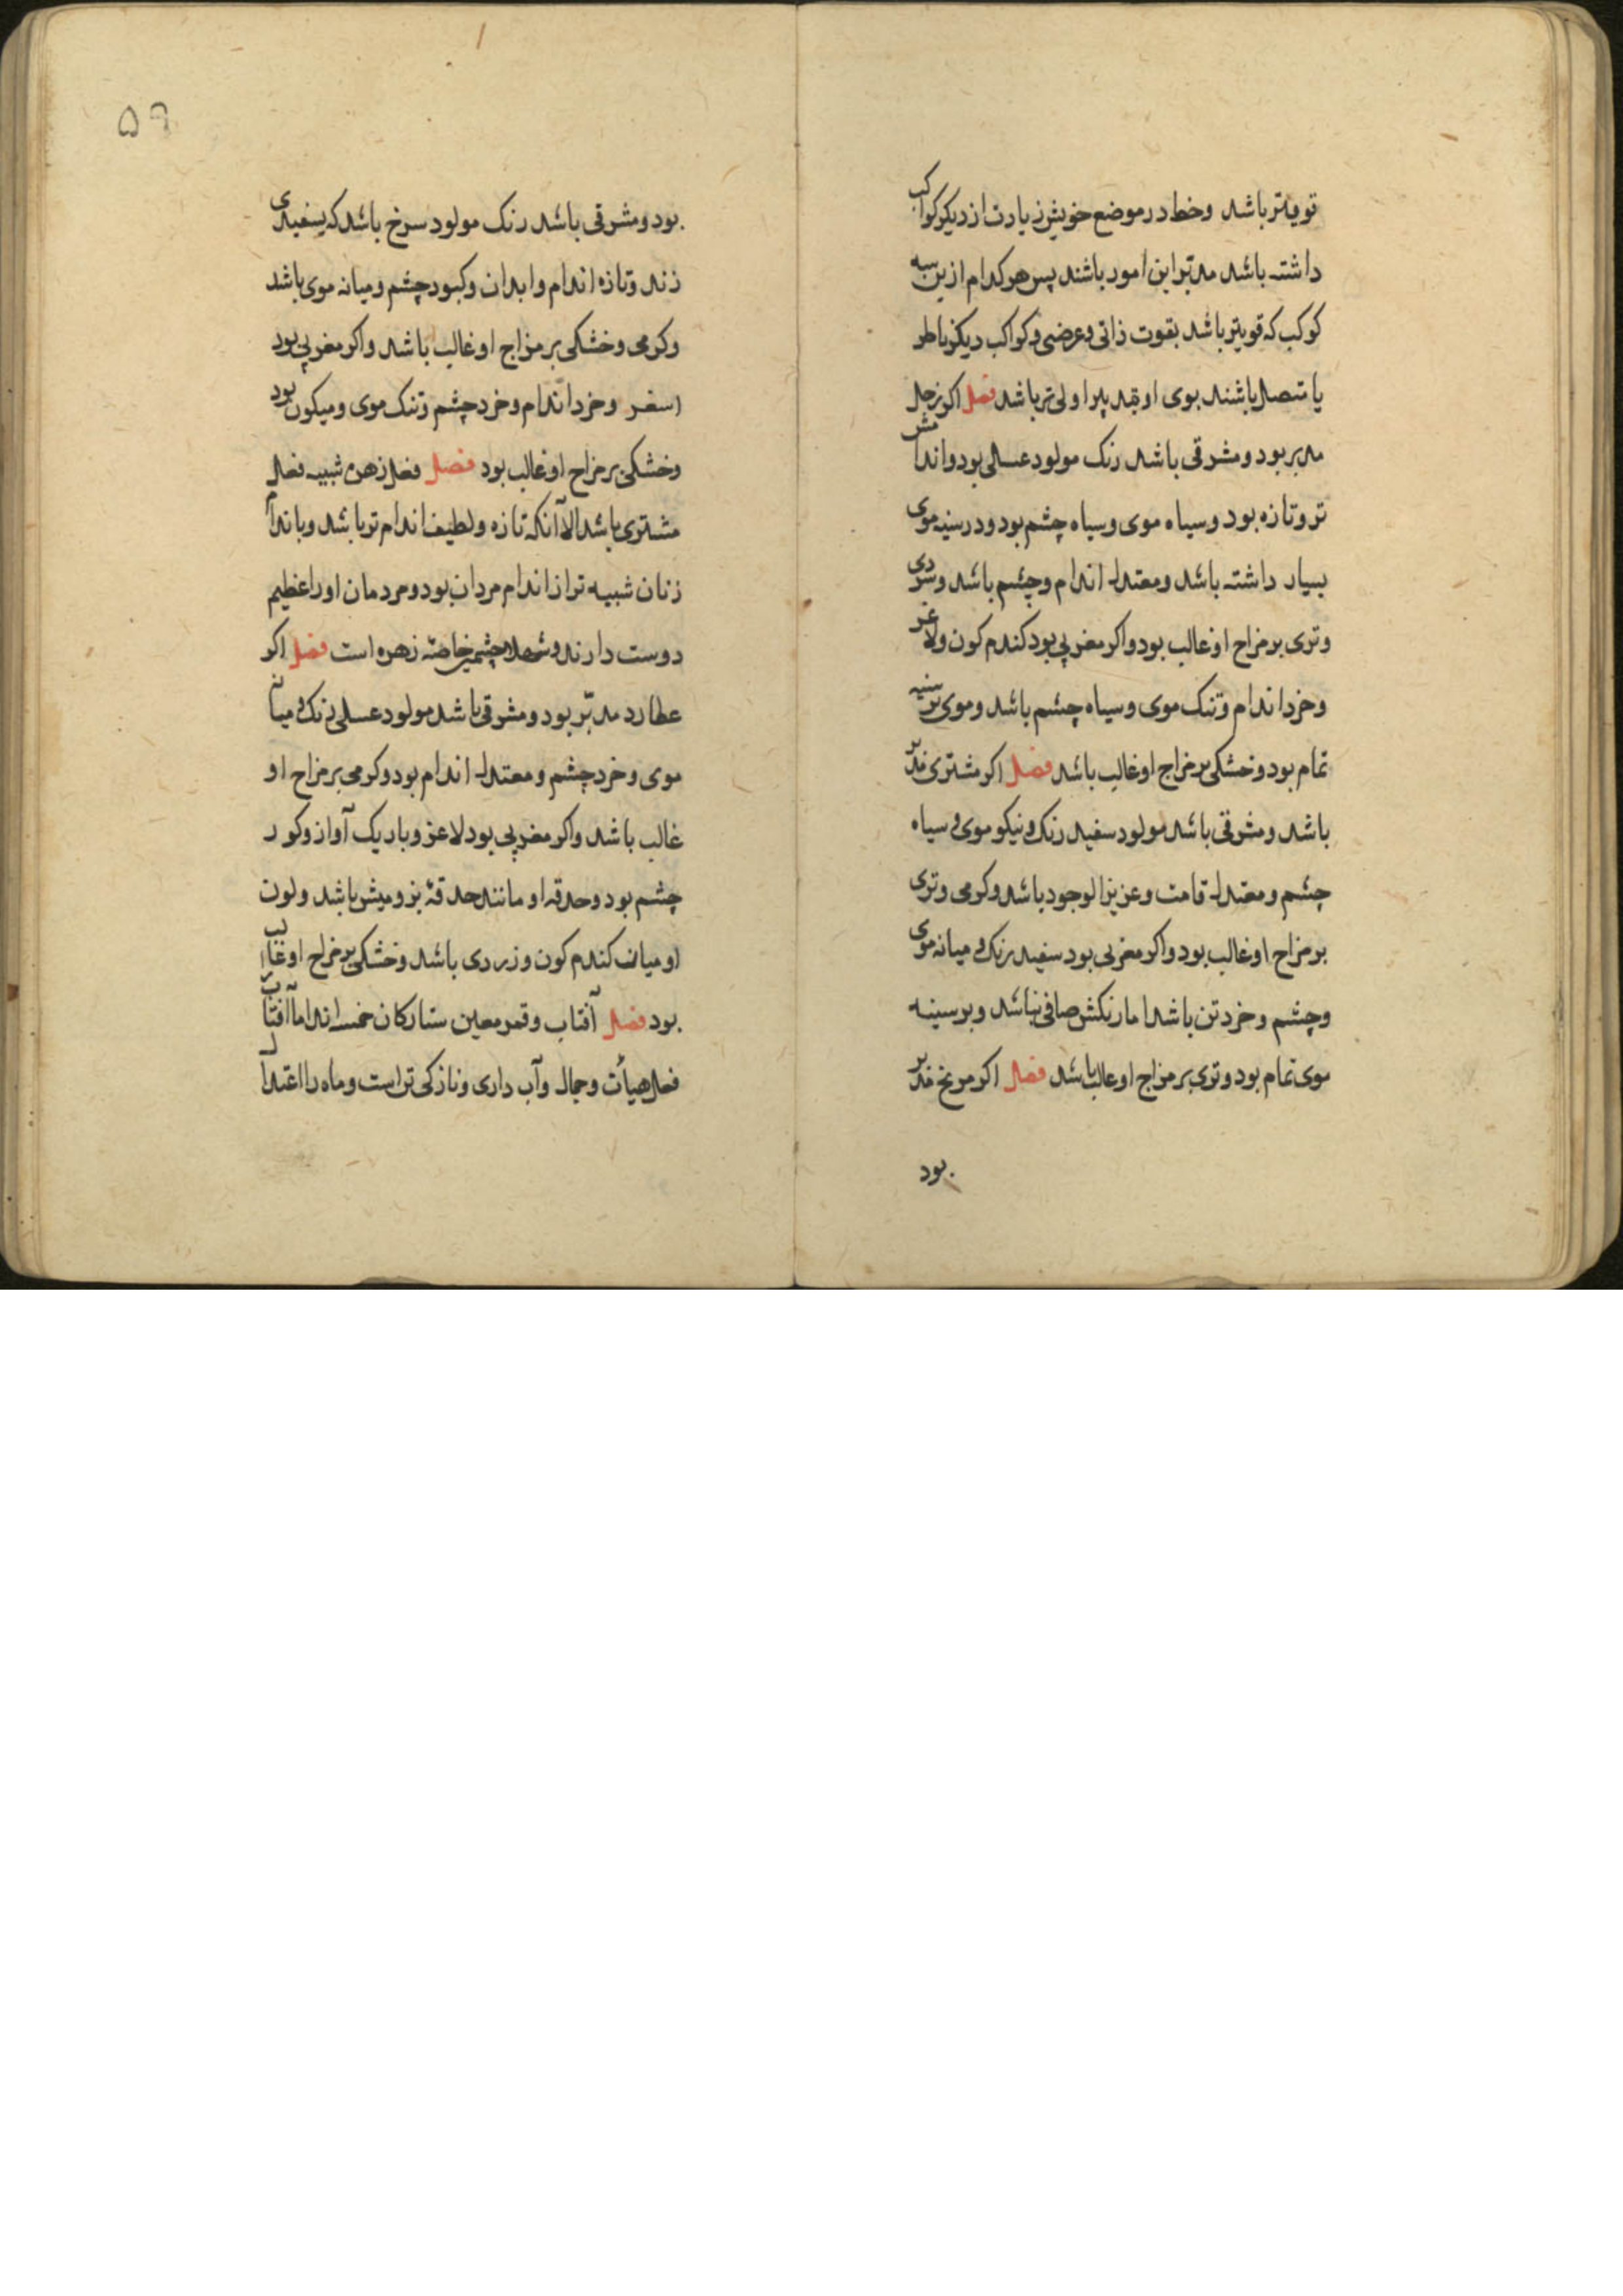 قویتر باشد وخط در موضع خویش زیادت از دیکر کواکب
داشته باشد مدبّر این امور باشند پس هر کدام ازین سه
کوکب که قویتر باشد بقوت ذاتی وعرضی وکواکب دیکر ناظر
یا متصل باشند بوی او بتدبیر اولی تر باشد فصل اکر زحل
مدبر بود ومشرقی باشد رنک مولود عسلی بود واندامش
تر وتازه بود وسیاه موی وسیاه چشم بود ودر سینه موی
بسیار داشته باشد ومعتدل اندام وچشم باشد وسردی
وتری بر مزاج او غالب بود واکر مغربی بود کندم کون ولاغر
وخرد اندام وتنک موی وسیاه چشم باشد وموی بر سینه
تمام بود وخشکی بر مزاج او غالب باشد فصل اکر مشتری مدبر
باشد ومشرقی باشد مولود سفید رنک ونیکو موی وسیاه
چشم ومعتدل قامت وعزیز الوجود باشد وکرمی وتری
بر مزاج او غالب بود واکر مغربی بود سفید رنک ومیانه موی
وچشم وخرد تن باشد اما رنکش صافی نباشد وبر سینه
موی تمام بود وتری بر مزاج او غالب باشد فصل اکر مریخ مدبر
بود
۵۹
بود ومشرقی باشد رنک مولود سرخ باشد که بسفیدی
زند وتازه اندام وابدان وکبود چشم ومیانه موی باشد
وکرمی وخشکی بر مزاج او غالب باشد واکر مغربی بود
اسفر وخرد اندام وخرد چشم وتنک موی ومیکون بود
وخشکی بر مزاج او غالب بود فصل فعل زهره شبیه فعل
مشتری باشد الا آنکه تازه ولطیف اندام تر باشد وباندام
زنان شبیه تر از اندام مردان بود ومردمان او را عظیم
دوست دارند وشهلا چشمی خاصّه زهره است فصل اکر
عطارد مدبّر بود ومشرقی باشد مولود عسلی رنک ومیانه
موی وخرد چشم ومعتدل اندام بود وکرمی بر مزاج او
غالب باشد واکر مغربی بود لاغر وباریک آواز وکور
چشم بود وحدقه او مانند حدقهٔ بز ومیش باشد ولون
او میان کندم کون وزردی باشد وخشکی بر مزاج او غالب
بود فصل آفتاب وقمر معین ستارکان خمسه اند اما آفتاب
فعل هیأت وجمال وآب داری ونازکی تر است وماه را اعتدال